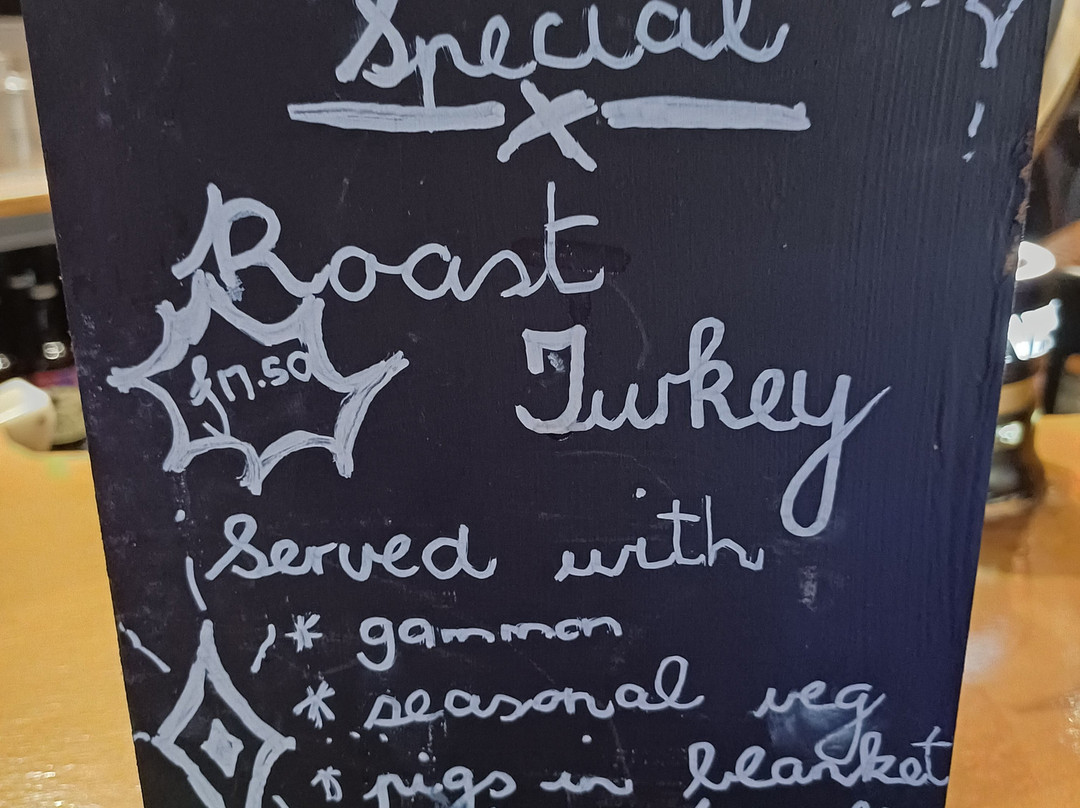 Special
Roast
£17.50
Turkey
Served with
* gammon
* seasonal veg
* pigs in blanket